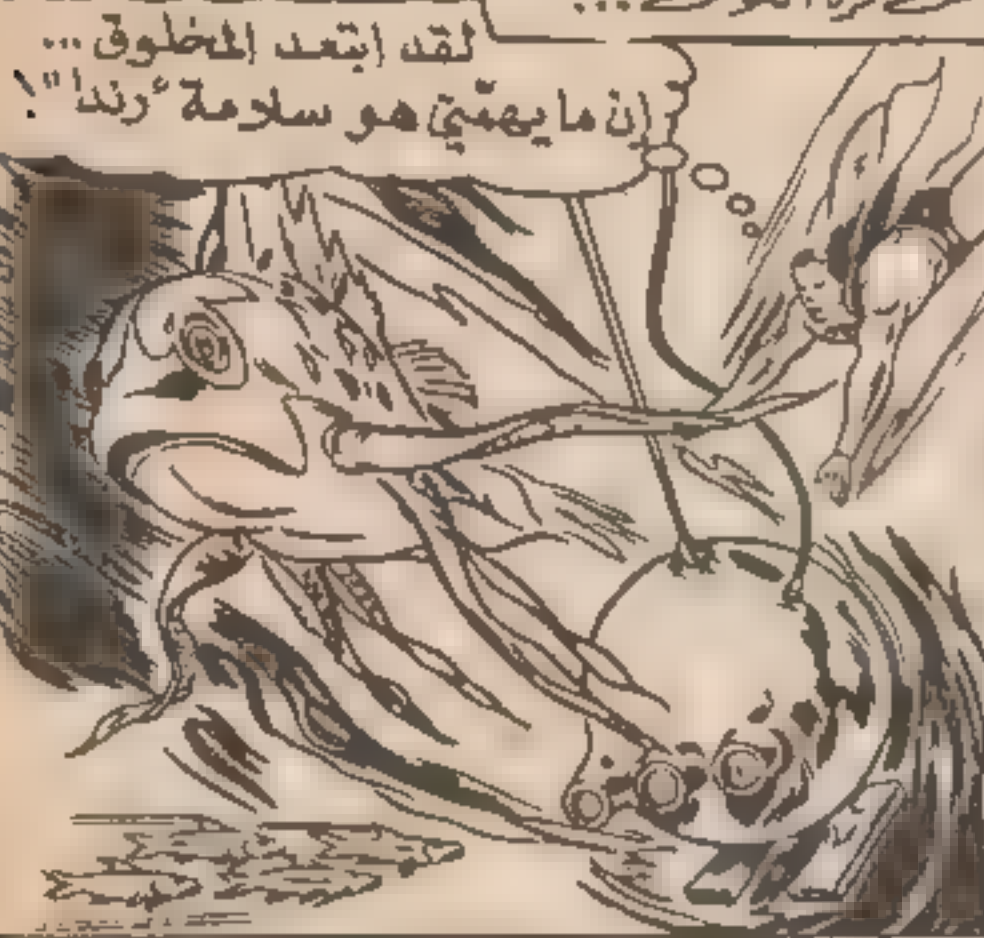 لقد ابتعد المخلوق ...
إن ما يهمّني هو سلامة "رندا"!